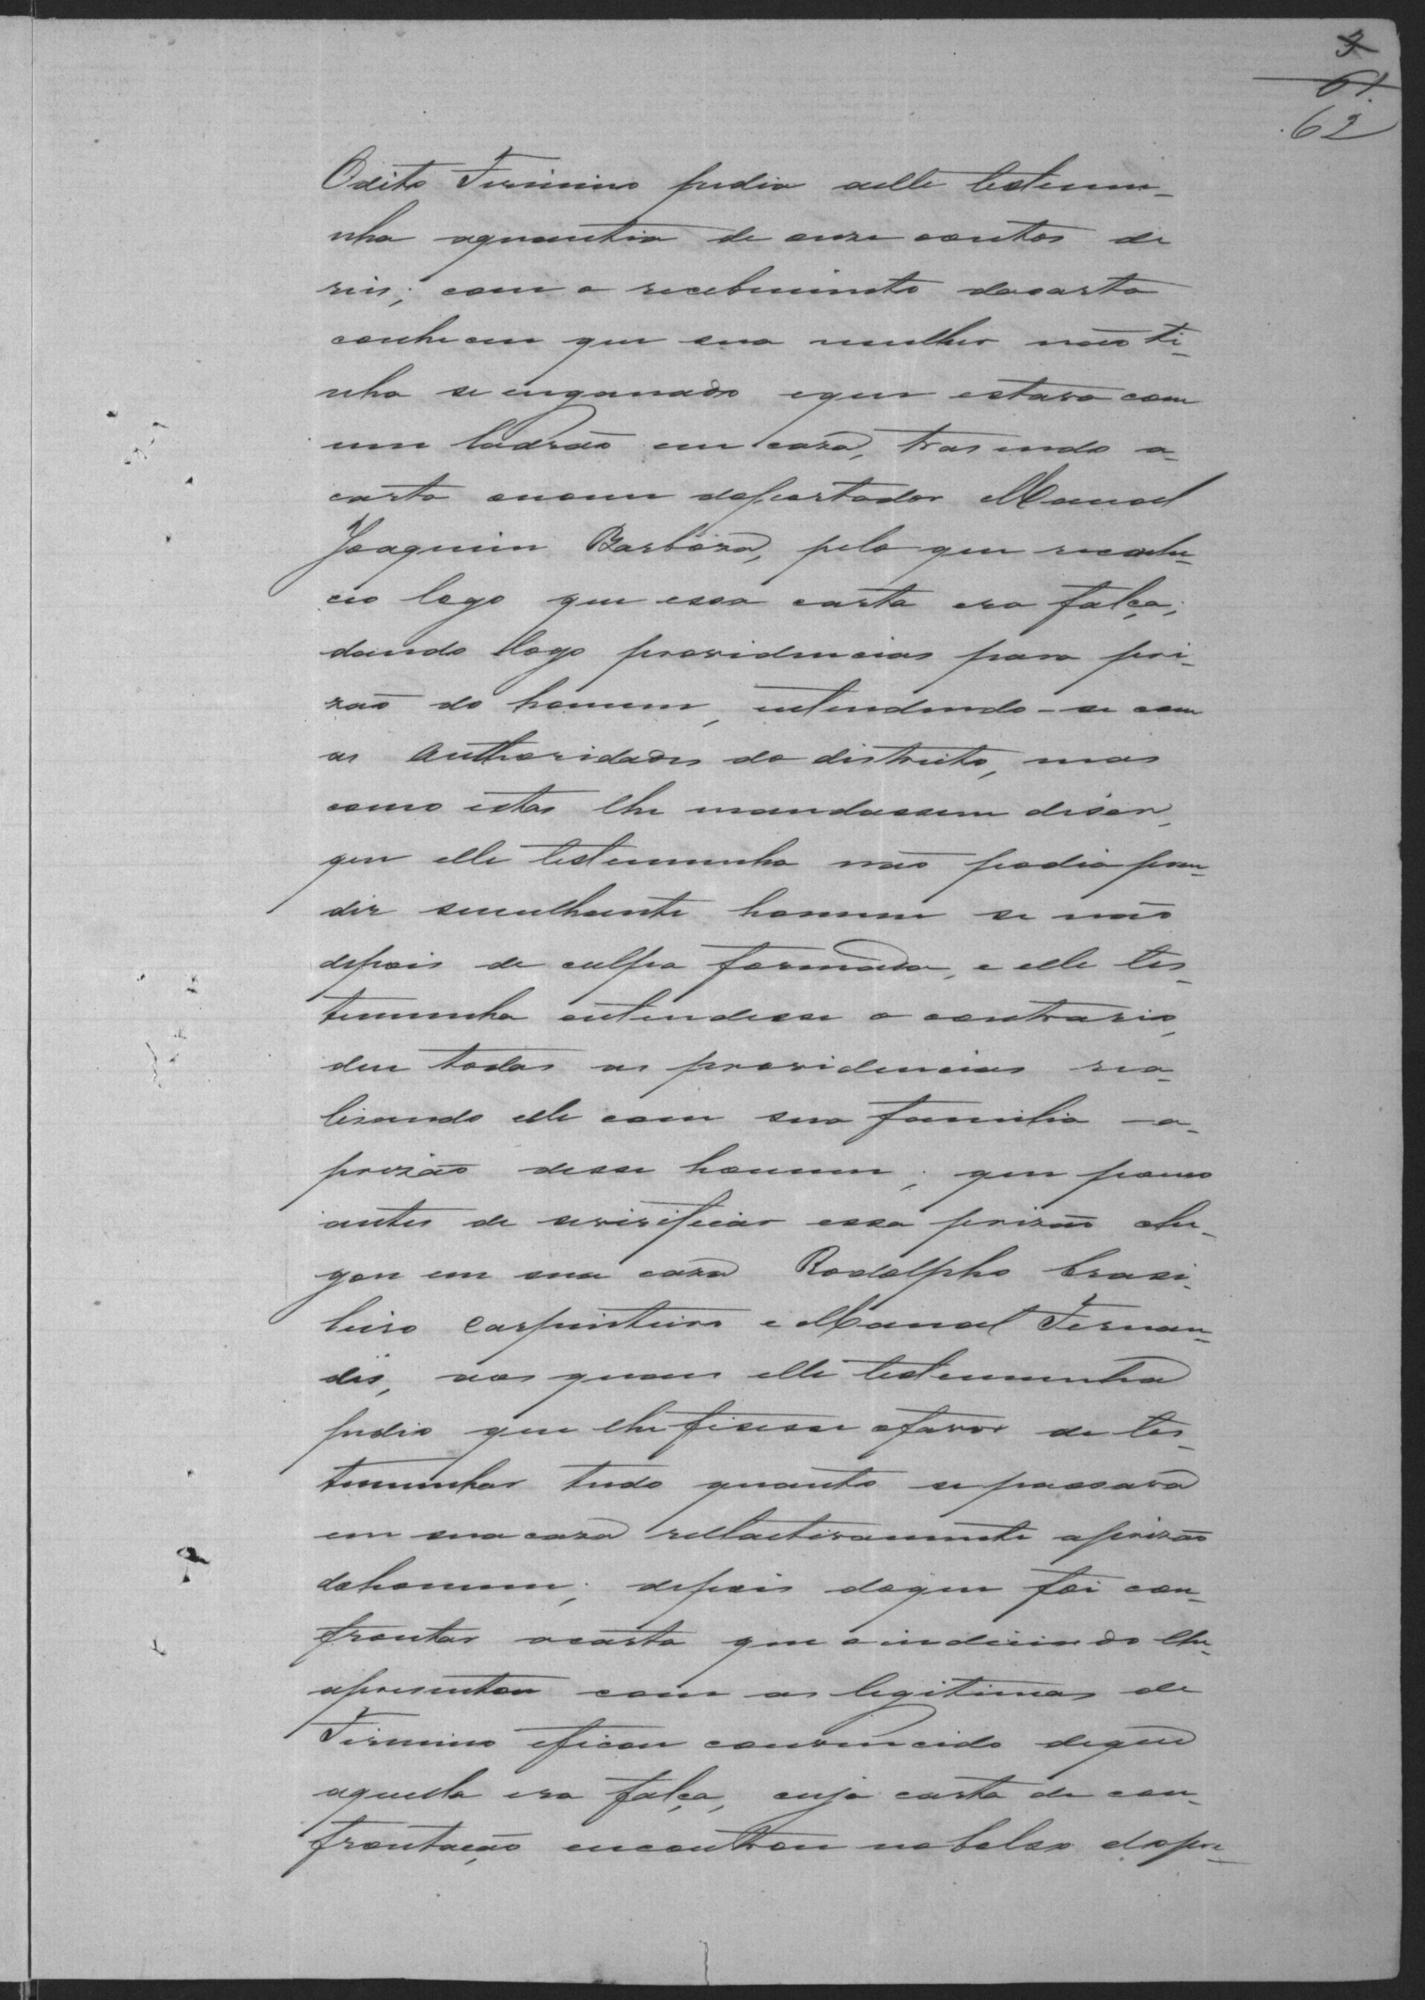 3
61.
62
Odito Firmino pedia aelle testemu-
nha aquantia de onze contos de
reis; com o recebimento dacarta
conheceu que sua mulher não ti-
nha se enganado eque estava com
um ladrão em caza, trasendo a
carta onome doportador Manoel
Joaquim Barboza, pelo que reconhe-
ceo logo que essa carta era falça;
dando logo providencias para pri-
zão do homem, entendendo-se com
as Authoridades do districto, mas
como estas lhe mandassem diser,
que elle testemunha não podia pren-
der semelhante homem se não
depois de culpa formada, e elle tes-
temunha entendesse o contrario,
deu todas as providencias rea-
lisando elle com sua familia a-
prizão desse homem; que pouco
antes de severificar essa prizão che-
gou em sua caza Rodolpho brasi-
leiro Carpinteiro e Manoel Fernan-
des, aos quaes elle testemunha
pedio que lhe fisesse ofavor de tes-
temunhar tudo quanto se passava
em sua caza rellactivamente aprizão
dohomem; depois doque foi con-
frontar acarta que o individuo lhe
apresentou com as legitimas de
Firmino eficou convencido deque
aquella era falça, cuja carta de con-
frontação encontrou nobolso dopre-